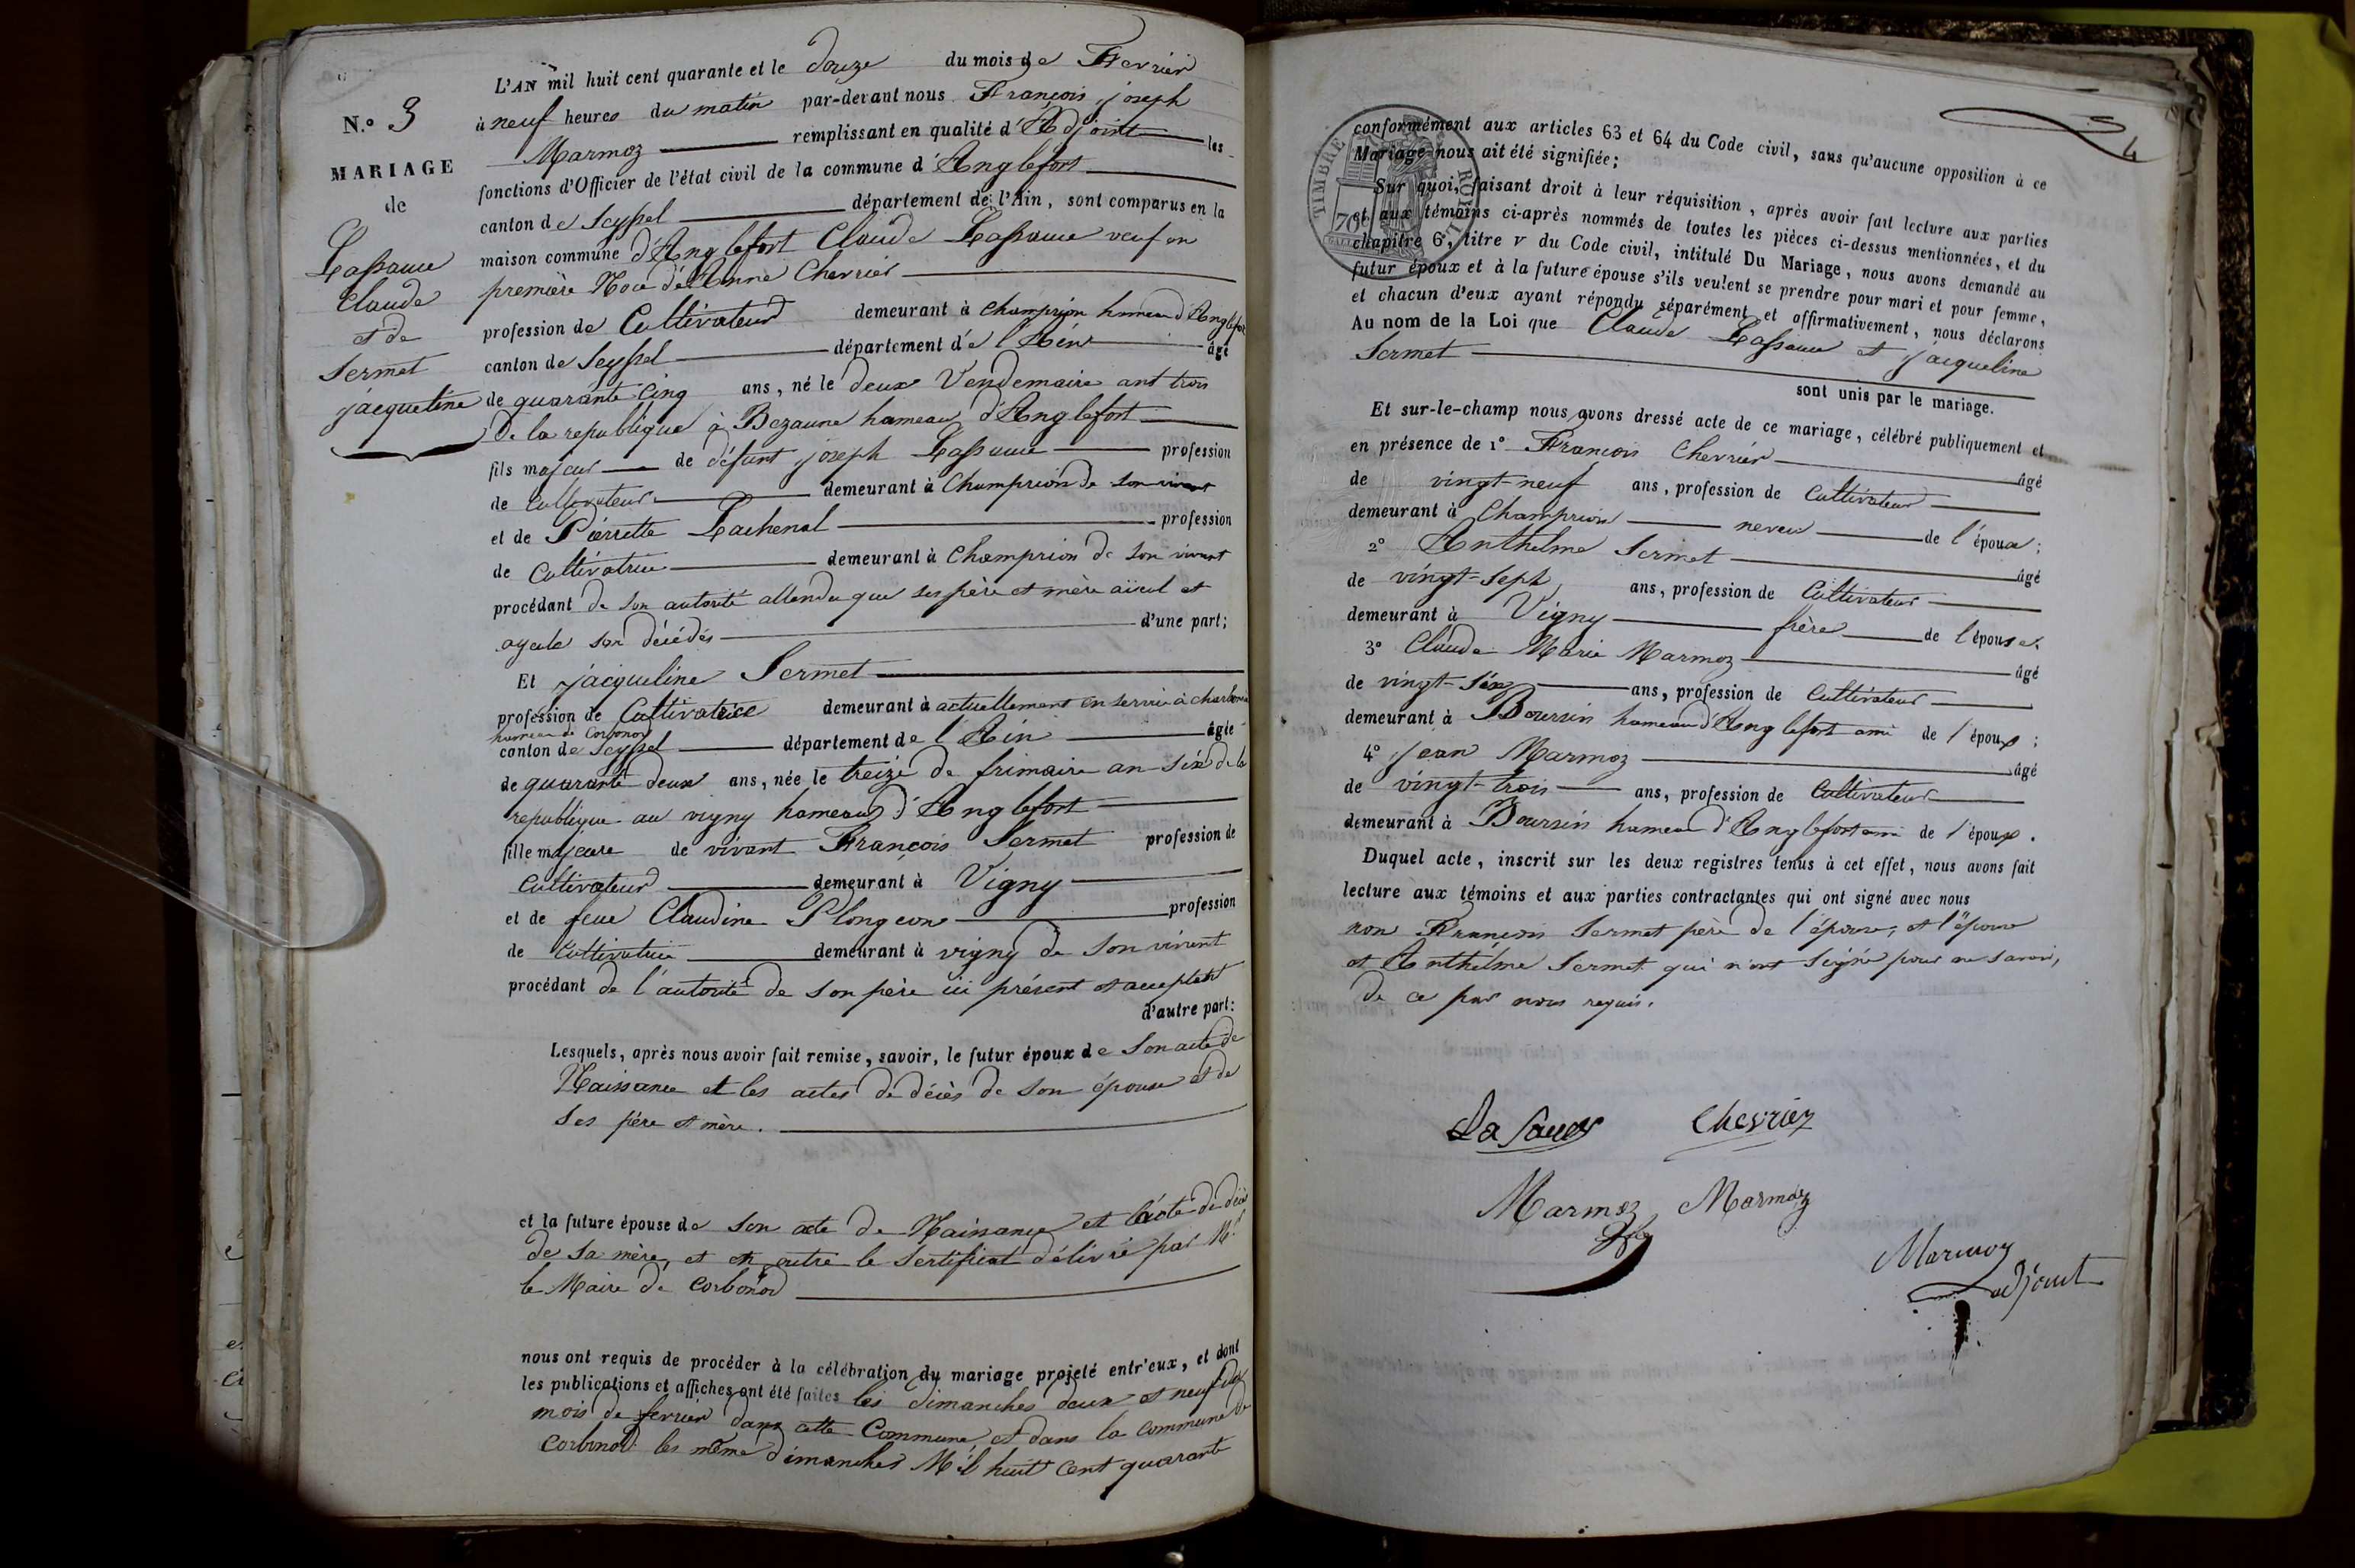 L'AN mil huit cent quarante et le douze du mois de Fevrier
à neuf heures du matin par-devant nous François joseph
Marmoz remplissant en qualité d'Adjoint les
fonctions d'Officier de l'état civil de la commune d'Anglefort
canton de Seyssel département de l'Ain, sont comparus en la
maison commune d'Anglefort Claude Lassauce veuf en
première Noce de Anne Chevrier
profession de Cultivateur demeurant à Champrion hameau d'Anglefort
canton de Seyssel département de l'Ain âgé
de quarante cinq ans, né le deux Vendemaire ant trois
De la republique à Bezaune hameau d'Anglefort
fils majeur de défunt joseph Lassauce profession
de Cultivateur demeurant à Champrion de son vivant
et de Pierrette Lachenal profession
de Cultivatrice demeurant à Champrion de son vivant
procédant de son autorité attendu que ses père et mère aïeul et
ayeule son décédés d'une part;
Et jacqueline Sermet
profession de Cultivatrice demeurant à actuellement en service à
hameau de Corbonod
canton de Seyssel département de l'Ain âgée
de quarante deux ans, née le treize de frimaire an six de la
republique au vigny hameau d'Anglefort
fille majeure de vivant François Sermet profession de
Cultivateur demeurant à Vigny
et de feue Claudine Plongeon profession
de Cultivatrice demeurant à vigny de son vivant
procédant de l'autorité de son père ici présent et acceptant
d'autre part:
Lesquels, après nous avoir fait remise, savoir, le futur époux de Son acte de
Naissance et les actes de décès de son épouse et de
ses père et mère.
et la future épouse de son acte de Naissance et l'acte de décès
de sa mère, et en outre le Sertificat délivré par Mr
le Maire de Corbonod
nous ont requis de procéder à la célébration du mariage projeté entr'eux, et dont
les publications et affiches ont été faites les dimanches deux et neuf du
mois de fevrier dans cette Commune et dans la commune de
Corbonod les même dimanches Mil huit Cent quarante
N.º 3
MARIAGE
de
Lassauce
Claude
et de
Sermet
jacqueline
4
TIMBRE ROYAL
70c
conformément aux articles 63 et 64 du Code civil, sans qu'aucune opposition à ce
Mariage nous ait été signifiée;
Sur quoi, faisant droit à leur réquisition, après avoir fait lecture aux parties
et aux témoins ci-après nommés de toutes les pièces ci-dessus mentionnées, et du
chapitre 6, titre v du Code civil, intitulé Du Mariage, nous avons demandé au
futur époux et à la future épouse s'ils veulent se prendre pour mari et pour femme,
et chacun d'eux ayant répondu séparément et affirmativement, nous déclarons
Au nom de la Loi que Claude Lassauce et jacqueline
Sermet
sont unis par le mariage.
Et sur-le-champ nous avons dressé acte de ce mariage, célébré publiquement et
en présence de 1º François Chevrier âgé
de vingt-neuf ans, profession de Cultivateur
demeurant à Champrion neveu de l'époux;
2º Anthelme Sermet âgé
de vingt-sept ans, profession de Cultivateur
demeurant à Vigny frère de l'épouse.
3º Claude Marie Marmoz âgé
de vingt-six ans, profession de Cultivateur
demeurant à Boursin hameau d'Anglefort ami de l'époux;
4º jean Marmoz âgé
de vingt-trois ans, profession de Cultivateur
demeurant à Boursin hameau d'Anglefort ami de l'époux.
Duquel acte, inscrit sur les deux registres tenus à cet effet, nous avons fait
lecture aux témoins et aux parties contractantes qui ont signé avec nous
non François Sermet père de l'épouse, et l'épouse
et Anthelme Sermet qui n'ont signé pour ne savoir,
de ce par nous requis.
La Sauce Chevrier
Marmoz Marmoz
Marmoz
adjoint